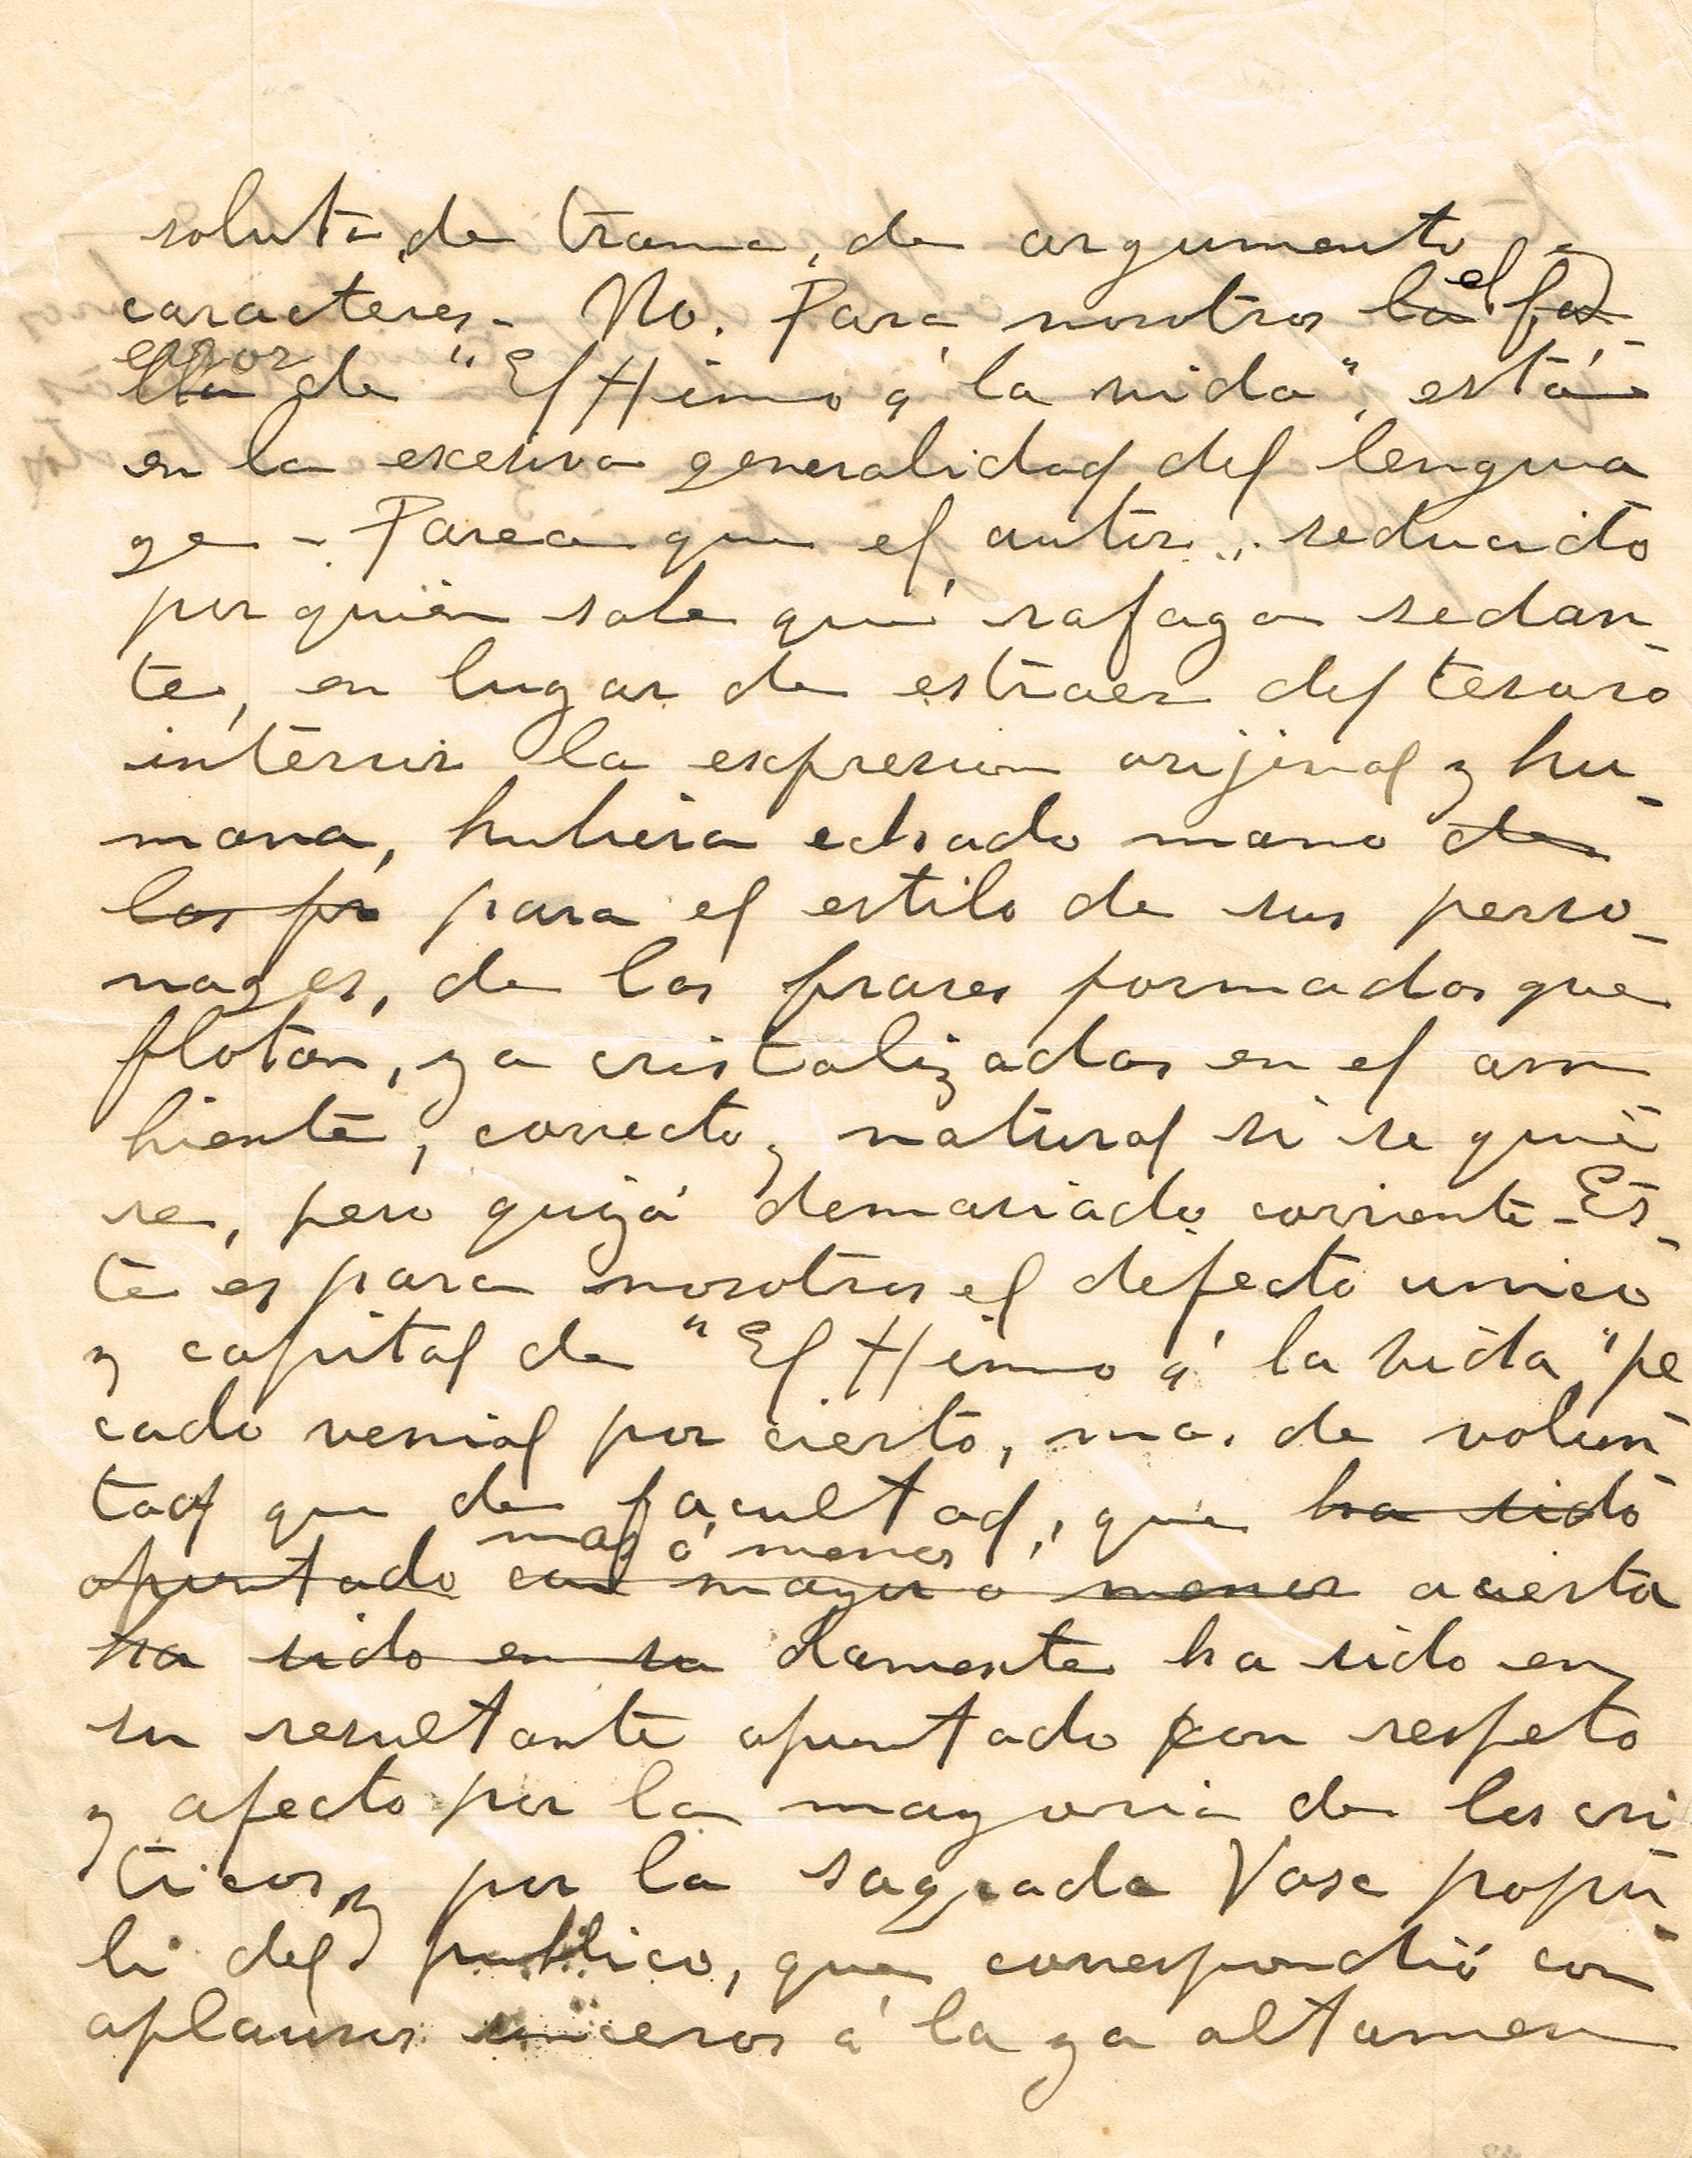 soluta, de trama, de argumento, de
caracteres - No. Para nosotros la el fa-
lla error de "El Himno á la vida", está
en la excesiva generalidad del lengua
ge - Parece que el autor, seducido
por quien sabe qué rafaga sedan-
te, en lugar de estraer del tesoro
interior la expresion orijinal y hu-
mana, hubiera echado mano de
los pr para el estilo de sus perso-
nages, de las frases formadas que
flotan, ya cristalizadas en el am
biente, correcto y natural si se quie
re, pero quizá demasiado corriente - Es-
te es para nosotros el defecto unico
y capital de "El Himno á la vida" pe
cado venial por cierto, mas de volun
tad que de facultad, que ha sido
mas ó menos
apuntado con mayor o menor acierta
ha sido en su damente ha sido en
su resultante apuntado con respeto
y afecto por la mayoria de los cri
ticos y por la sagrada Vose popu-
li del publico, que correspondió con
aplausos sinceros á la ya altamen